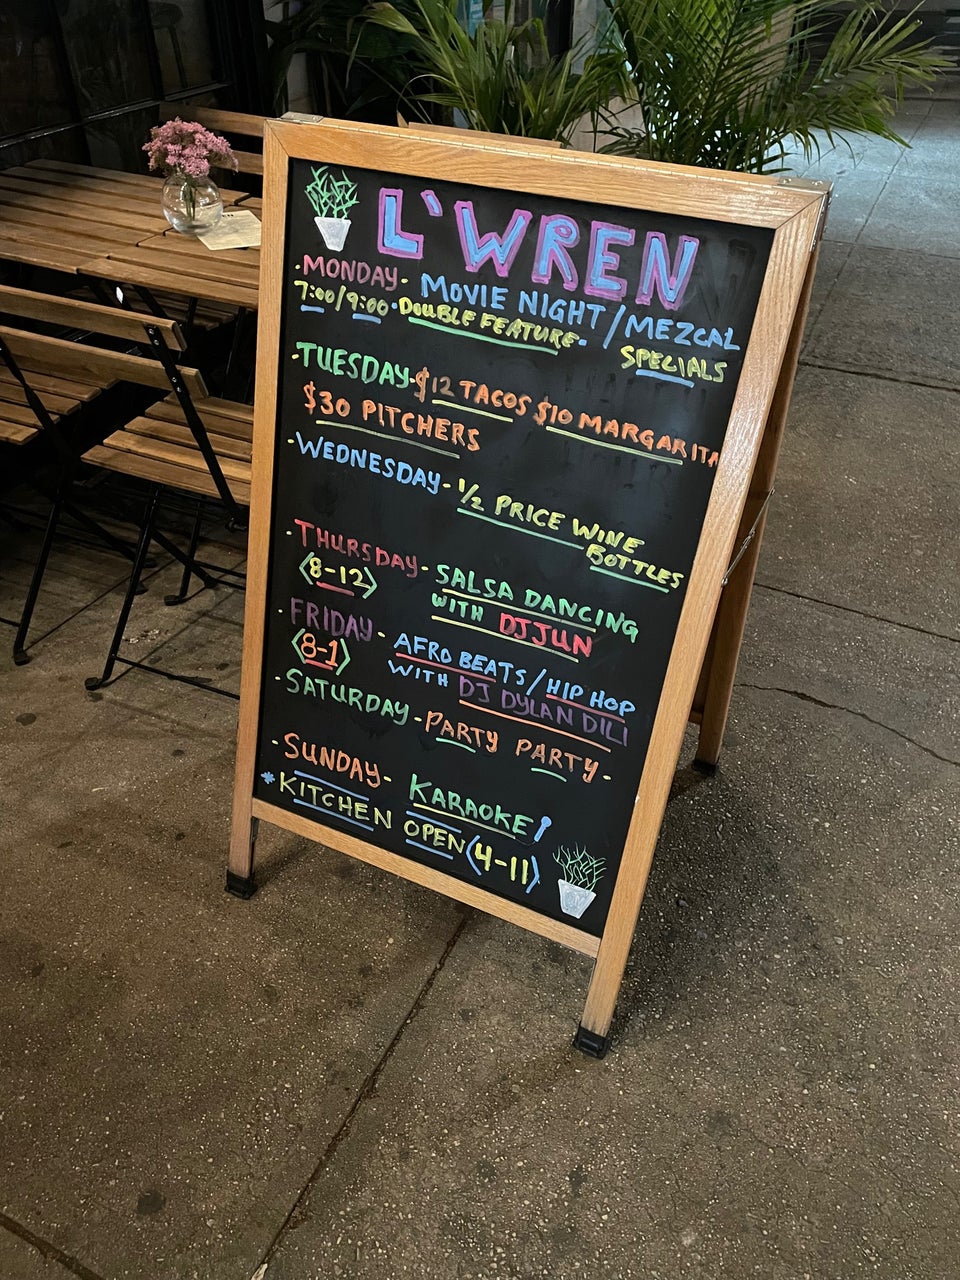 L'WREN
· MONDAY · MOVIE NIGHT / MEZCAL
7:00/9:00 · DOUBLE FEATURE · SPECIALS
· TUESDAY - $12 TACOS $10 MARGARITA
$30 PITCHERS
· WEDNESDAY - 1/2 PRICE WINE
BOTTLES
· THURSDAY - SALSA DANCING
<8-12> WITH DJ JUN
· FRIDAY - AFRO BEATS / HIP HOP
<8-1> WITH DJ DYLAN DILI
· SATURDAY - PARTY PARTY -
· SUNDAY - KARAOKE!
* KITCHEN OPEN <4-11>